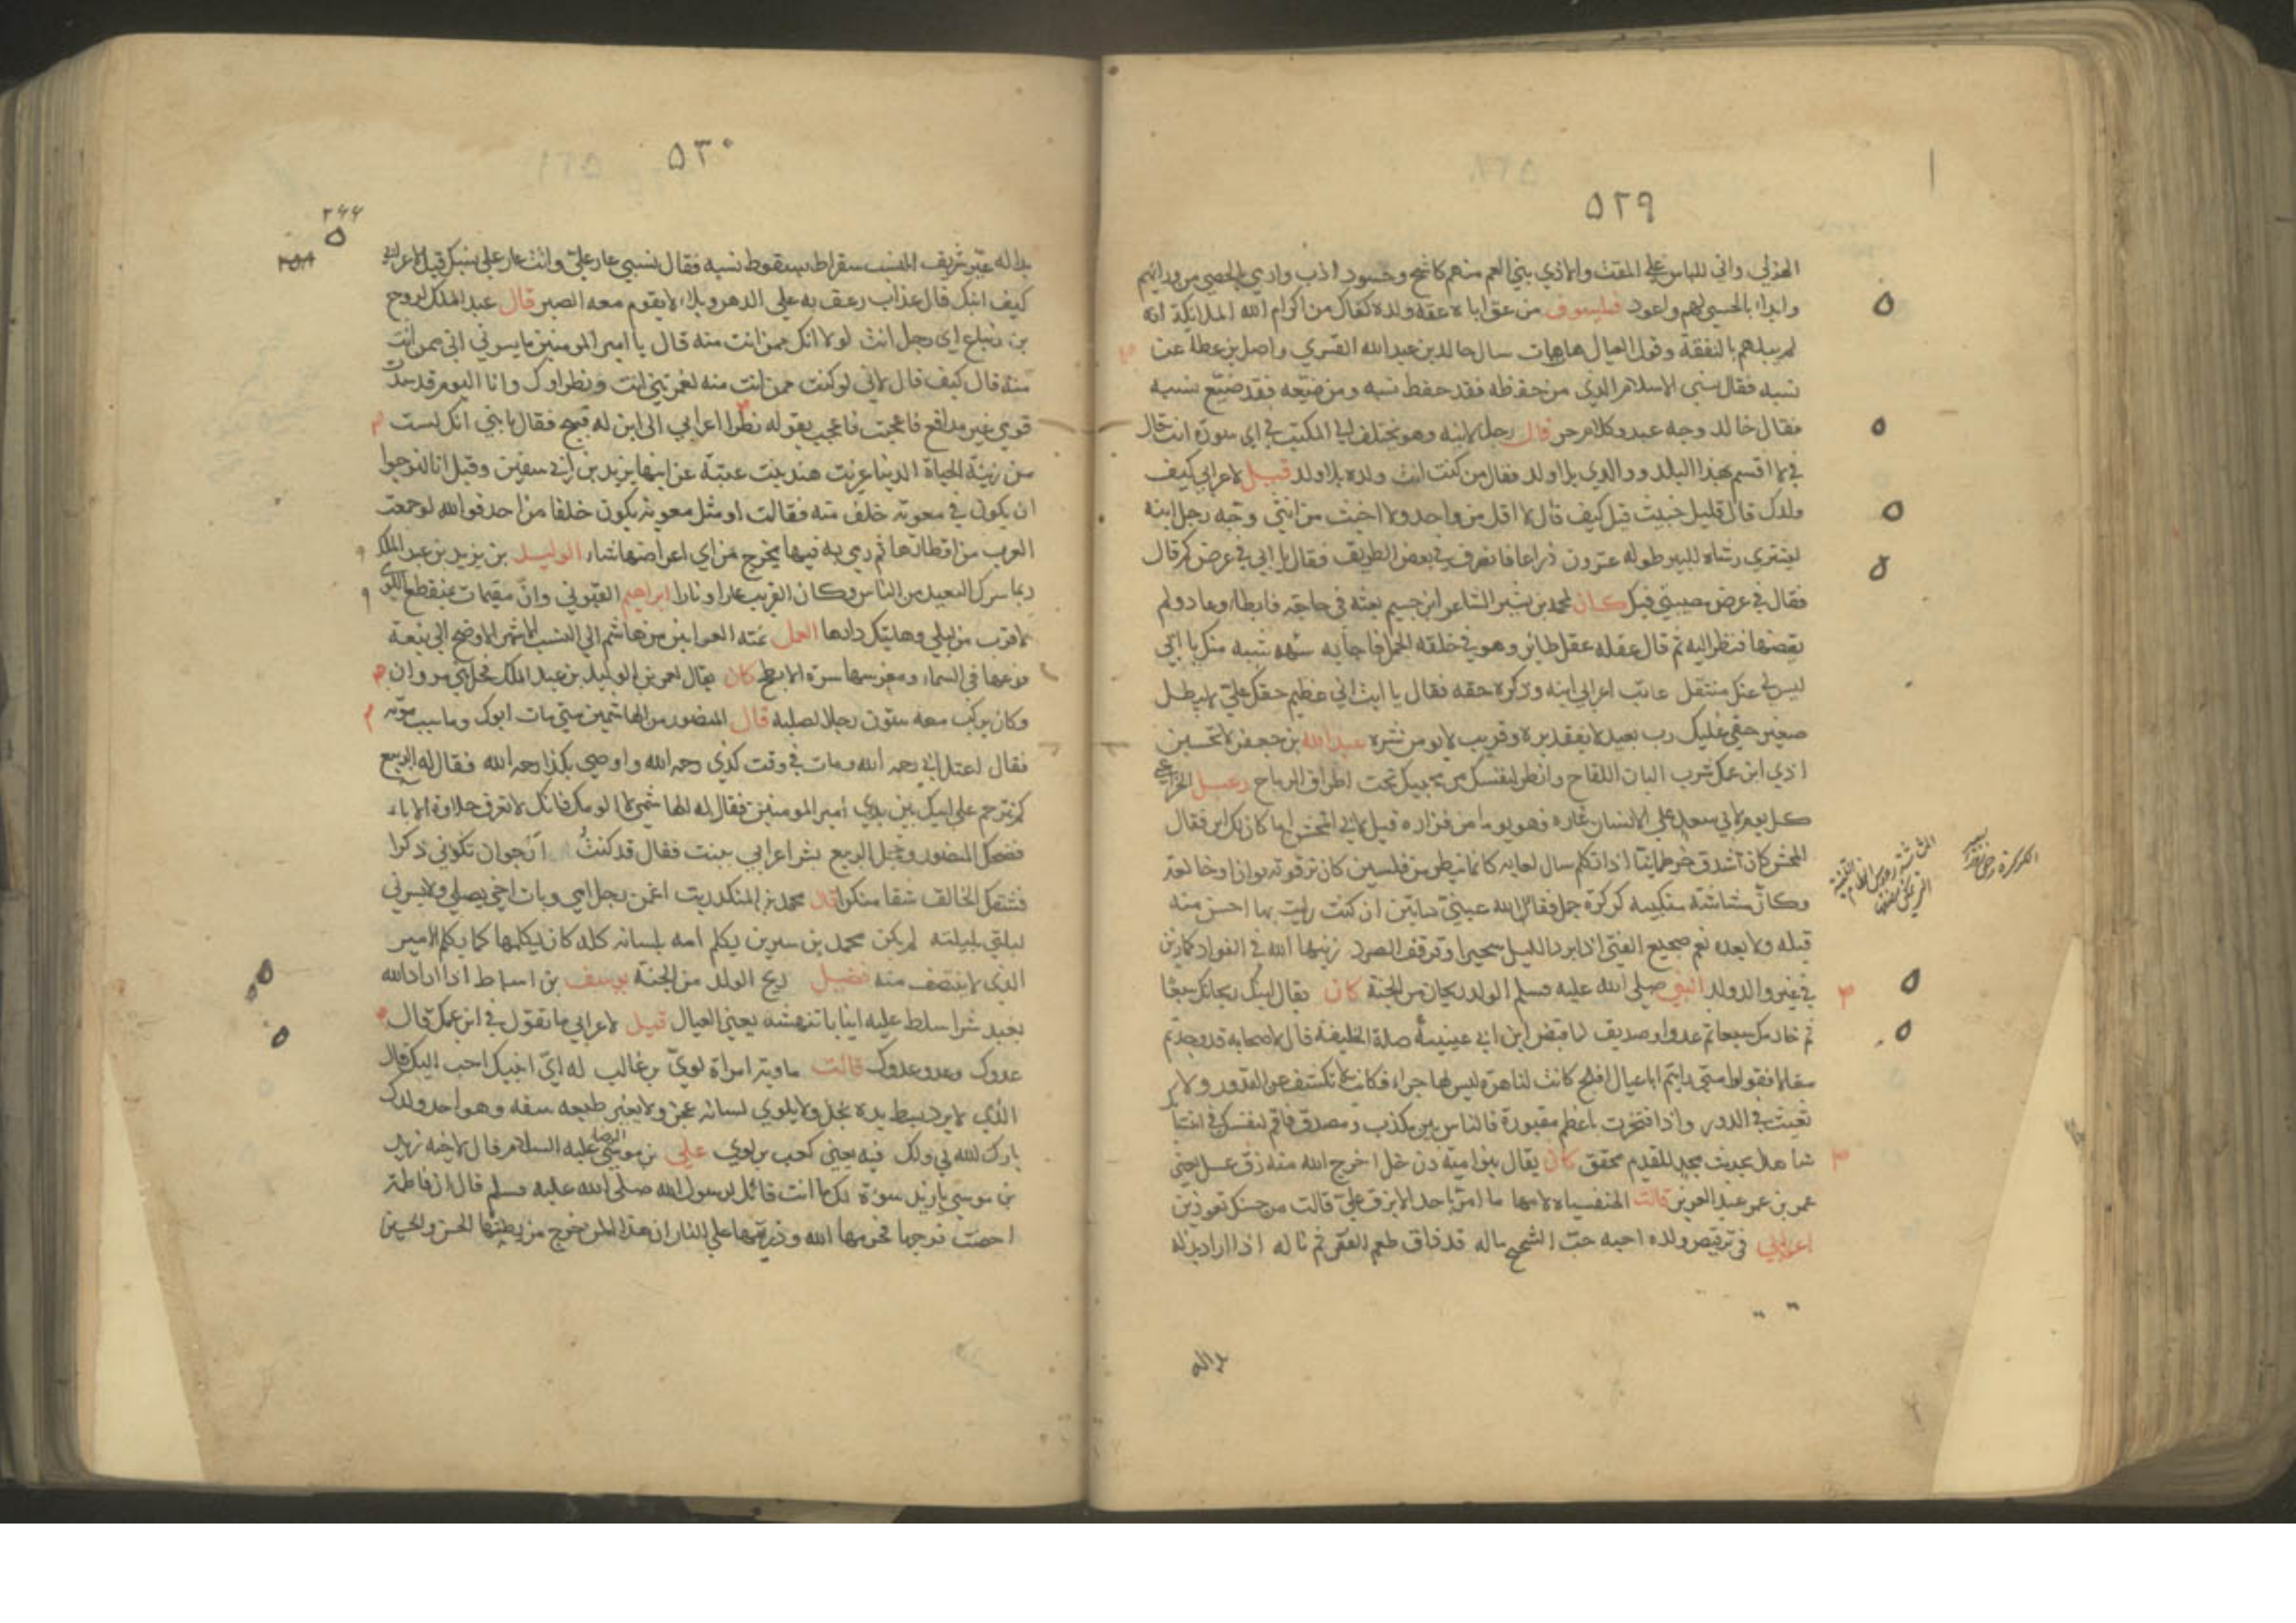 ٥٢٩
الهذلي واني للباس علي المقت والاذي بني العم منهم كاشح وحسود اذب وارمي بالحصي من ورائهم
وابدا بالحسي لهم واعود فيلسوف من عق اباه عقه ولده كفاك من اكرام الله الملائكة انه
لم يبلهم بالنفقة وقول العيال هات هات سال خالد بن عبد الله القسري واصل بن عطا عن
نسبه فقال نسبي الاسلام الذي من حفظه فقد حفظ نسبه ومن ضيعه فقد ضيع نسبه
فقال خالد وجه عبد وكلام حر قال رجل لابنه وهو يختلف الي المكتب في اي سورة انت قال
في لا اقسم بهذا البلد ووالدي بلا ولد فقال من كنت انت ولده بلا ولد قيل لاعرابي كيف
ولدك قال قليل خبيث قيل كيف قال لا اقل من واحد ولا اخبث من انثي وجه رجل ابنه
ليشتري رشاء للبير طوله عشرون ذراعا فانصرف في بعض الطريق فقال يا ابي في عرض كم قال
فقال في عرض مصيبتي فيك كان لمحمد بن بشير الشاعر ابن جسيم بعثه في حاجة فابطا وعاد ولم
يقضها فنظر اليه ثم قال عقله عقل طائر وهو في خلقه الجمل فاجابه شبه شبيه منك يا ابي
ليس لي عنك منتقل عاتب اعرابي ابنه وذكره حقه فقال يا ابت ان عظيم حقك علي لا يبطل
صغير حقي عليك رب بعيد لا يفقد بره وقريب لا يومن شره عبد الله بن جعفر لا تحسبن
اذي ابن عمك شرب البان اللقاح وانظر لنفسك من يجيبك تحت اطراف الرماح دعبل الخزاعي
المخش كان اشدق خرطمانيا اذا تكلم سال لعابه كانما ينظر من فلسين كان ترقوته بوان او خالفة
وكان مشاشة منكبيه كركرة جمل فقا الله عيني هاتين ان كنت رايت بها احسن منه
قبله ولا بعده نعم ضجيع الفتي اذا برد الليل سحيرا وقرقف الصرد زينها الله في الفواد كما زين
في عين والد ولد النبي صلي الله عليه وسلم الولد ريحان من الجنة كان يقال ابنك ريحانك سبعا
ثم خادمك سبعا ثم عدو او صديق لما قبض ابن ابي عيينة صلة الخليفة قال لاصحابه قد وجدتم
مقالا فقولوا متي رايتم ابا عيال افلح كانت لنا هرة ليس لها جراء فكانت لا تكشف عن القدور ولا
تعيث في الدور واذا افتخرت باعظم مقبورة فالناس بين مكذب ومصدق فاقم لنفسك في انتسابك
شاهدا بحديث مجد للقديم محقق كان يقال بنو امية دن خل اخرج الله منه زق عسل يعني
عمر بن عبد العزيز قالت الخنفساء لامها ما امر باحد الا بزق علي قالت من حسنك تعوذين
اعرابي في ترقيص ولده احبه حب الشحيح ماله قد ذاق طعم الفقر ثم ناله اذا اراد بذله
بداله
٥٣٠
٢٤٤
بدا له عير شريف النسب سقراط بسقوط نسبه فقال نسبي عار علي وانت عار علي نسبك قيل لاعرابي
كيف ابنك قال عذاب رعف به علي الدهر وبلاء لا يقوم معه الصبر قال عبد الملك لروح
بن زنباع اي رجل انت لولا انك ممن انت منه قال يا امير المومنين ما يسرني اني ممن انت
منه قال كيف قال لاني لو كنت ممن انت منه لغمرتني انت ونظراوك وانا اليوم قد سدت
قومي غير مدافع فاعجب بقوله نظر اعرابي الي ابن له قبيح فقال يا بني انك لست
من زينة الحياة الدنيا عزيت هند بنت عتبة عن ابنها يزيد بن ابي سفين وقيل انا لنرجوا
ان يكون في معوية خلف منه فقالت او مثل معوية يكون خلفا من احد فوالله لو جمعت
العرب من اقطارها ثم رمي به فيها لخرج من اي اعراضها شاء الوليد بن يزيد بن عبد الملك
ربما سرك البعيد من الناس وكان القريب عارا ونارا ابراهيم الصولي وان مقيمات بمنقطع اللوي
لاقرب من ليلي وهاتيك دارها
فرعها في السماء ومغرسها سرة الابطح كان يقال لعمر بن الوليد بن عبد الملك فحل بني مروان
وكان يركب معه ستون رجلا لصلبه قال المنصور من الهاشميين متي مات ابوك وما سبب موته
فقال اعتل ابي رحمه الله ومات في وقت كذي رحمه الله واوصي بكذا رحمه الله فقال له الربيع
كم تترحم علي ابيك بين يدي امير المومنين فقال له الهاشمي لا الومك فانك لا تعرف حلاوة الاباء
فضحك المنصور وخجل الربيع بشر اعرابي ببنت فقال قد كنت ارجوان تكوني ذكرا
فشقك الخالق شقا منكرا قال محمد بن المنكدر بت اغمز رجل امي وبات اخي يصلي ولا يسرني
ليلتي بليلته لم يكن محمد بن سيرين يكلم امه بلسانه كله كان يكلمها كما يكلم الامير
الذي لا ينتصف منه فضيل ريح الولد من الجنة يوسف بن اسباط اذا اراد الله
بعبد شرا سلط عليه انيابا تنهشه يعني العيال قيل لاعرابي ما تقول في ابن عمك قال
عدوك وعدو عدوك قالت ماوية امراة لوي بن غالب له اي ابنيك احب اليك قال
الذي لا يرد بسط يده بخل ولا يلوي لسانه عجز ولا يغير طبيعه سفه وهو احد ولدك
بارك الله لي ولك فيه يعني كعب بن لوي علي بن موسي الرضا عليه السلام قال لاخيه زيد
بن موسي يا زيد سوءة لك ما انت قائل لرسول الله صلي الله عليه وسلم قال ان فاطمة
احصنت فرجها فحرمها الله وذريتها علي النار ان هذا لمن خرج من بطنها الحسن والحسين